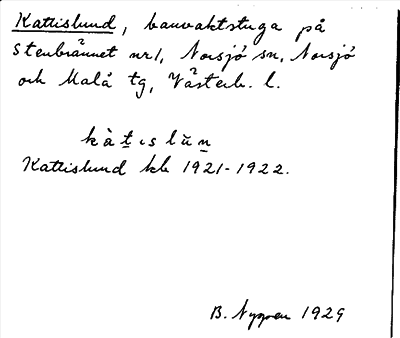 Kattislund, banvaktstuga på
Stenbrännet nr1, Norsjö sn, Norsjö
och Malå tg, Västerb. l.
kàt̲ɩslŭn̲
Kattislund kb 1921-1922.
B. Nygren 1929